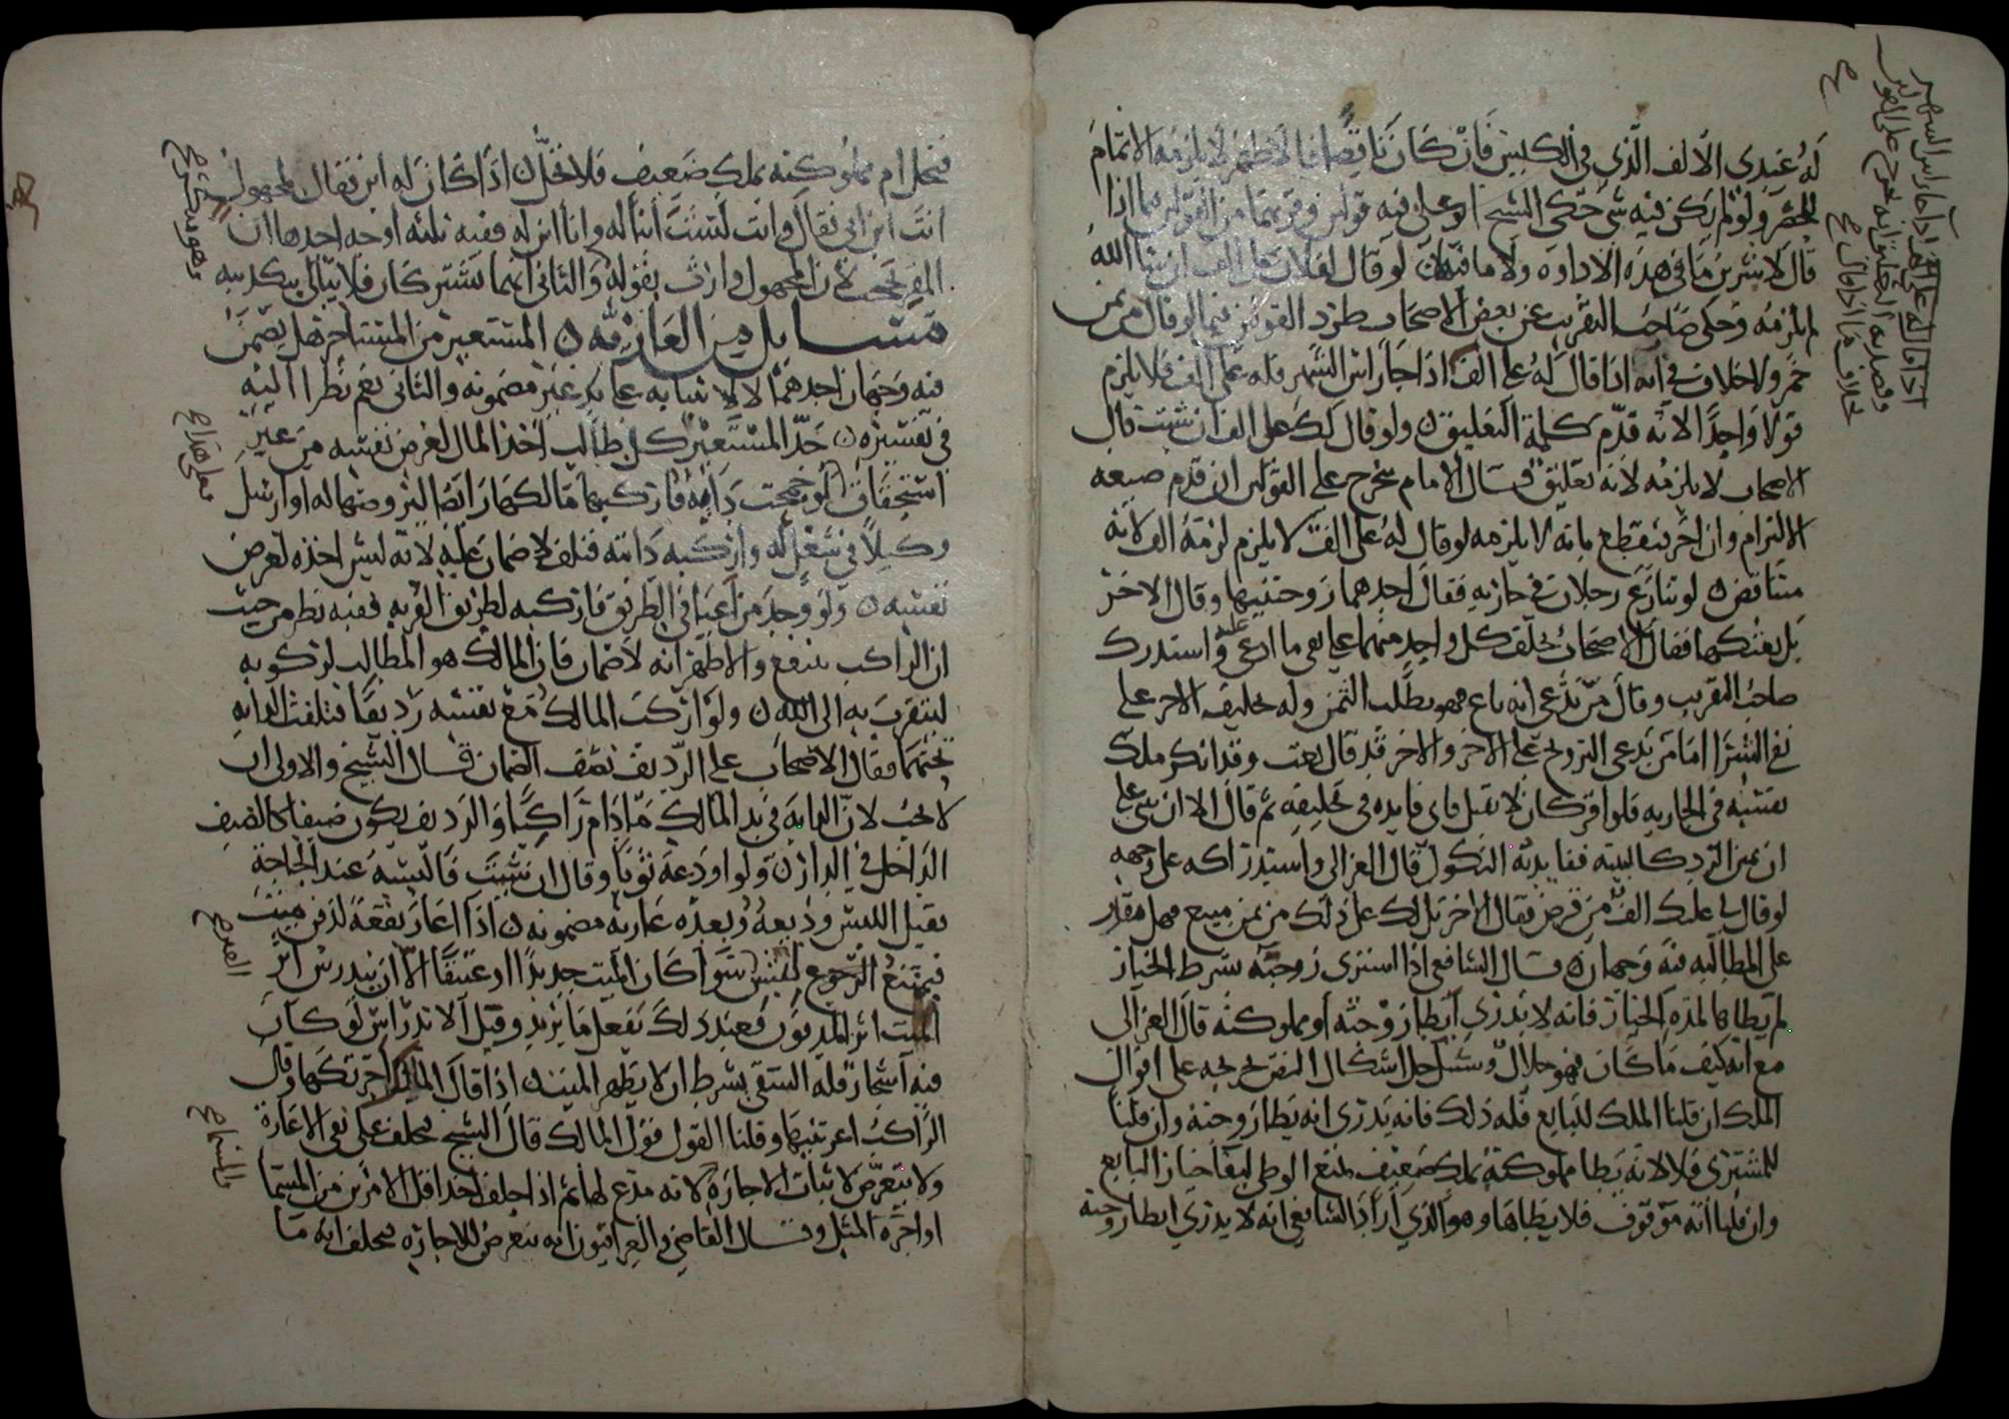 له عندي الألف الذي في الكيس فإن كان ناقصا فالأظهر لا يلزمه الاتمام
للحصر ولو لم يكن فيه شي حكى الشيخ ابو علي فيه قولين وقربهما من القولين فيما اذا
قال لاشربن ما في هذه الاداوة ولا ما فيها لو قال لفلان علي الف ان شا الله
لم يلزمه وحكى صاحب التقريب عن بعض الاصحاب طرد القولين فيما لو قال من ثمن
خمر ولا خلاف في انه اذا قال له علي الف اذا جا راس الشهر فله علي الف فلا يلزم
قولا واحدا لانه قدم كلمة التعليق ولو قال لك علي الف ان شئت قال
الاصحاب لا يلزمه لانه تعليق قال الامام يخرج على القولين ان قدم صيغه
الالتزام وان اخر نقطع بانه لا يلزمه لو قال له علي الف لا يلزم لزمه الف لانه
متناقض لو تنازع رجلان في جاريه فقال احدهما زوجتنيها وقال الاخر
بل بعتكها فقال الاصحاب يحلف كل واحد منهما على نفي ما ادعي عليه واستدرك
صاحب التقريب وقال من يدعي انه باع فهو يطلب الثمن وله تحليف الاخر على
نفي الشرا اما من يدعي التزويج على الاخر والاخر قد قال بعت وقد انكر ملك
نفسه في الجاريه فلو اقر كان لا يقبل فاي فايده في تحليفه ثم قال الا ان نبني على
ان يمين الرد كالبينه ففايدته النكول قال الغزالي واستدراكه على وجهه
لو قال لي عليك الف من قرض فقال الاخر بل لك علي ذلك من ثمن مبيع فهل يقدر
على المطالبه فيه وجهان قال الشافعي اذا اشترى زوجته بشرط الخيار
لم يطاها لمدة الخيار فانه لا يدري ايطا زوجته او مملوكته قال الغزالي
مع انه كيف ما كان فهو حلال وسبيل حل اشكال النص تخريجه على اقوال
الملك ان قلنا الملك للبايع فله ذلك فانه يدري انه يطا زوجته وان قلنا
للمشتري فلا لانه يطا مملوكة بملك ضعيف لمنع الوطي لبقا خيار البايع
وان قلنا انه موقوف فلا يطاها وهو الذي اراد الشافعي انه لا يدري ايطا زوجته
اذا قال له علي الف اذا جا راس الشهر
فتحل ام مملوكته بملك ضعيف فلا تحل اذا كان له ابن فقال لمجهول
انت ابن ابي فقال وانت لست ابنا له وانا ابن له ففيه ثلثه اوجه احدها ان
المقر يحجب لان المجهول وارث بقوله والثاني انهما يشتركان فلا يبالي بتكذيبه
مسايل من العاريه المستعير من المستاجر هل يضمن
فيه وجهان احدهما لا لابتنايه على يد غير مضمونه والثاني نعم نظرا اليه
في نفسه حد المستعير كل طالب اخذ المال لغرض نفسه من غير
استحقاق لو جمحت دابة فاركبها مالكها رايضا ليروضها له او ارسل
وكيلا في شغل له واركبه دابته فتلف لا ضمان عليه لانه ليس اخذه لغرض
نفسه ولو وجد من اعيا في الطريق فاركبه لطريق القربه ففيه نظر من حيث
ان الراكب ينتفع والاظهر انه لا ضمان فان المالك هو المطالب لركوبه
ليتقرب به الى الله ولو اركب المالك مع نفسه رديفا فتلفت الدابه
تحتهما فقال الاصحاب على الرديف نصف الضمان قال الشيخ والاولى ان
لا يجب لان الدابه في يد المالك ما دام راكبا والرديف يكون ضيفا كالضيف
الداخل في الدار ولو اودعه ثوبا وقال ان شئت فالبسه عند الحاجة
فقبل اللبس وديعة وبعده عارية مضمونه اذا اعار بقعة لدفن ميت
فيمتنع الرجوع لنبش سوا كان الميت جديدا او عتيقا الا ان يندرس اثر
الميت اثر المدفون فعند ذلك يفعل ما يريد وقبل الاندراس لو كان
فيه اشجار فله السقي بشرط ان لا يظهر الميت اذا قال المالك اجرتكها وقال
الراكب اعرتنيها وقلنا القول قول المالك قال الشيخ يحلف على نفي الاعارة
ولا يتعرض لاثبات الاجارة لانه مدع لها ثم اذا حلف اخذ اقل الامرين من المسمى
او اجرة المثل وقال القاضي والعراقيون انه يتعرض للاجارة فيحلف انه ما